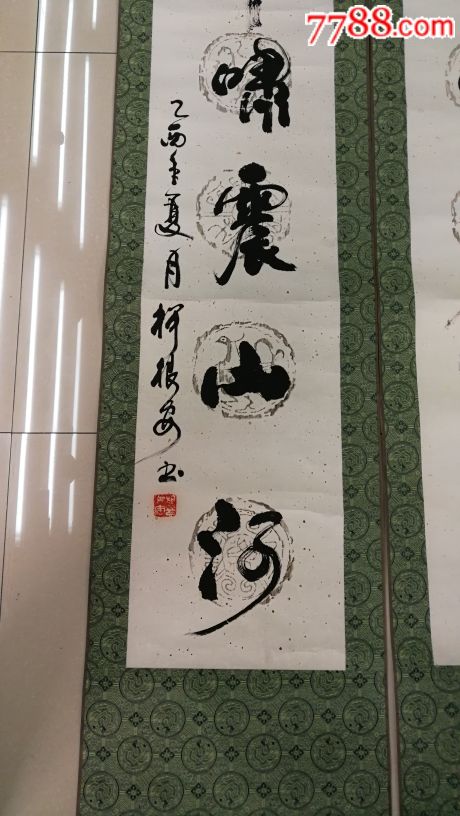 7788.com
嘯震山河
乙酉年夏月柯根安书